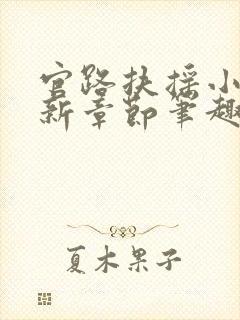 官路扶摇小
新章节笔趣
夏木果子